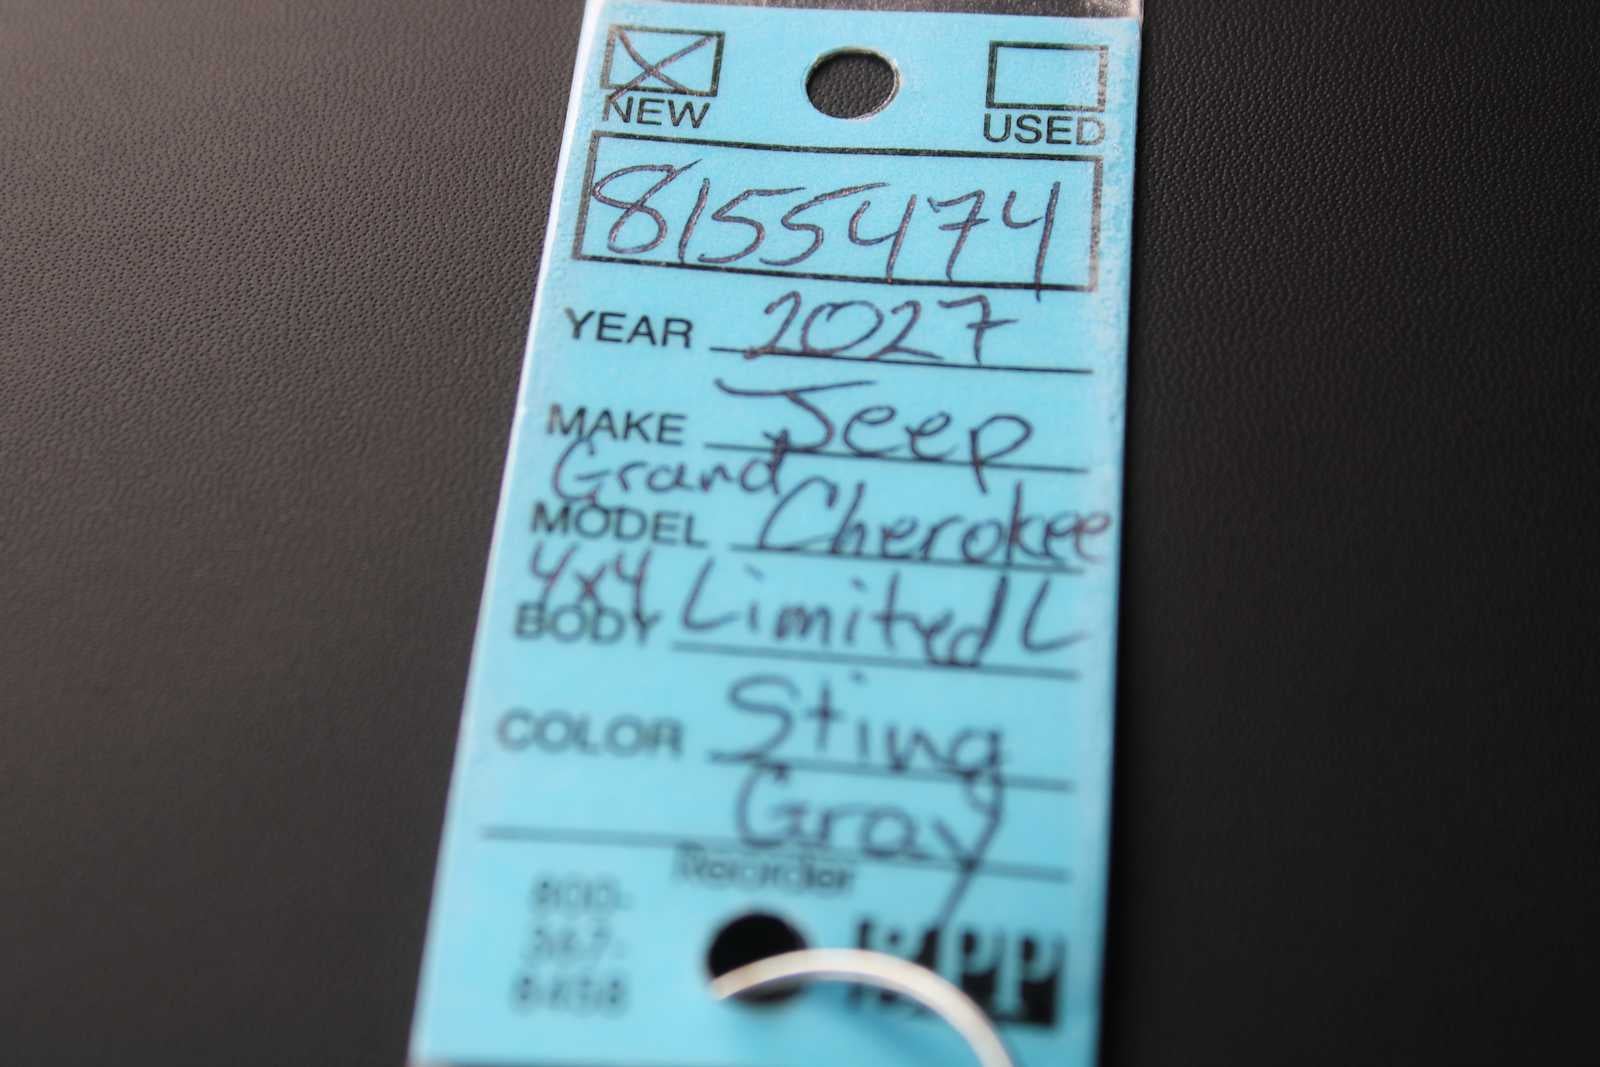 NEW USED
8155474
YEAR 2027
MAKE Jeep
Grand
MODEL Cherokee
4x4
BODY Limited L
COLOR Sting
Gray
Reorder
800-
367-
8458